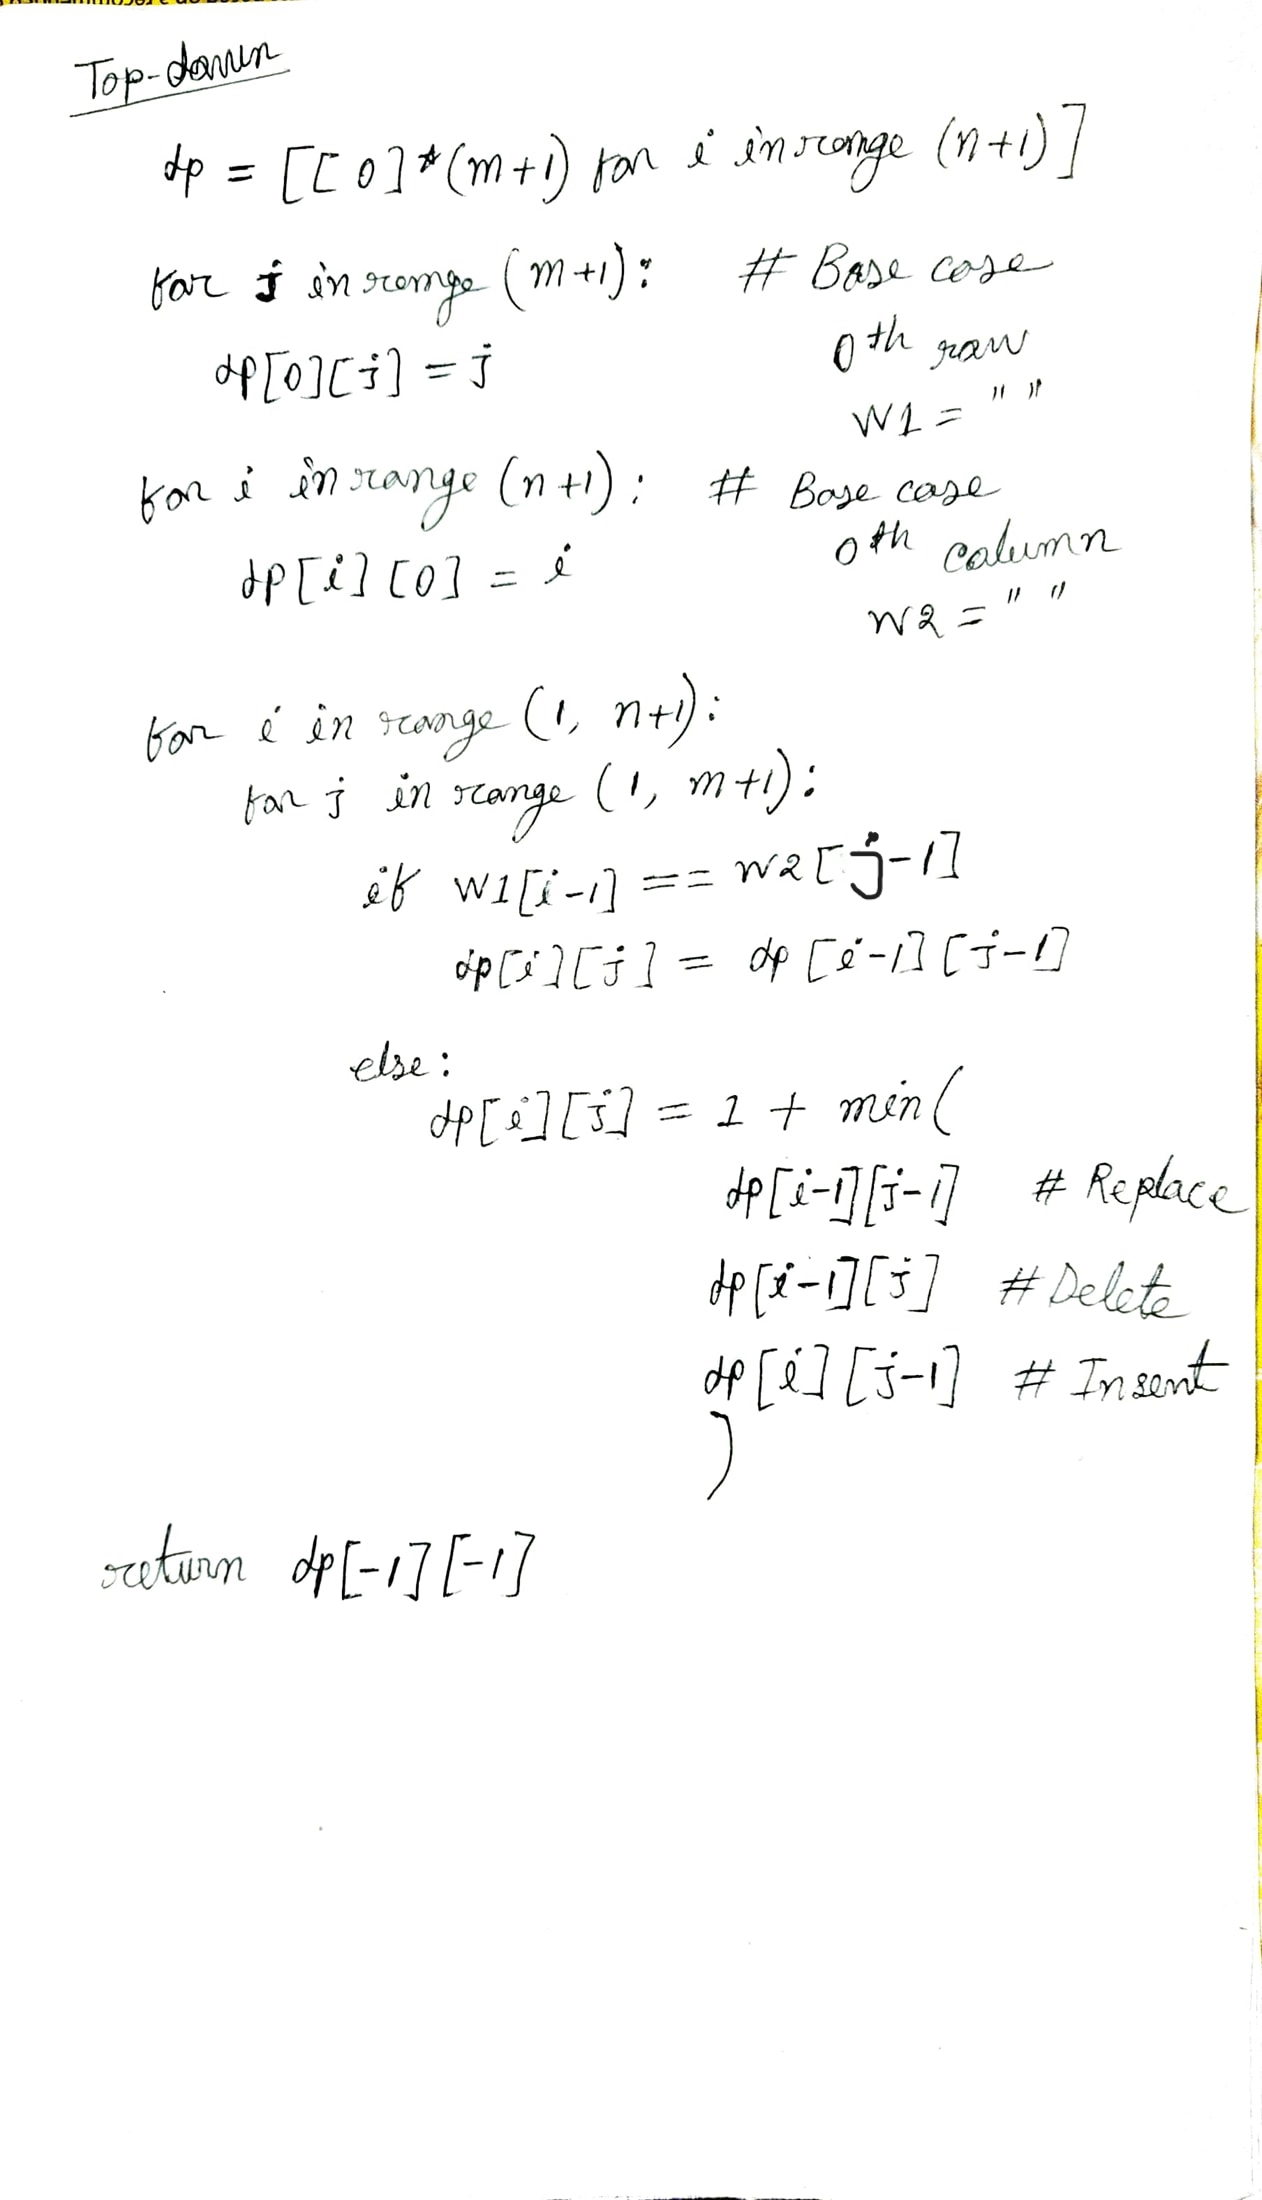 Top-down
dp = [[0]*(m+1) for i in range (n+1)]
for j in range (m+1): # Base case
0th row
dp[0][j] = j
W1 = " "
for i in range (n+1): # Base case
0th column
dp[i][0] = i
W2 = " "
for i in range (1, n+1):
for j in range (1, m+1):
if W1[i-1] == W2[j-1]
dp[i][j] = dp[i-1][j-1]
else:
dp[i][j] = 1 + min(
dp[i-1][j-1] # Replace
dp[i-1][j] # Delete
dp[i][j-1] # Insert
)
return dp[-1][-1]